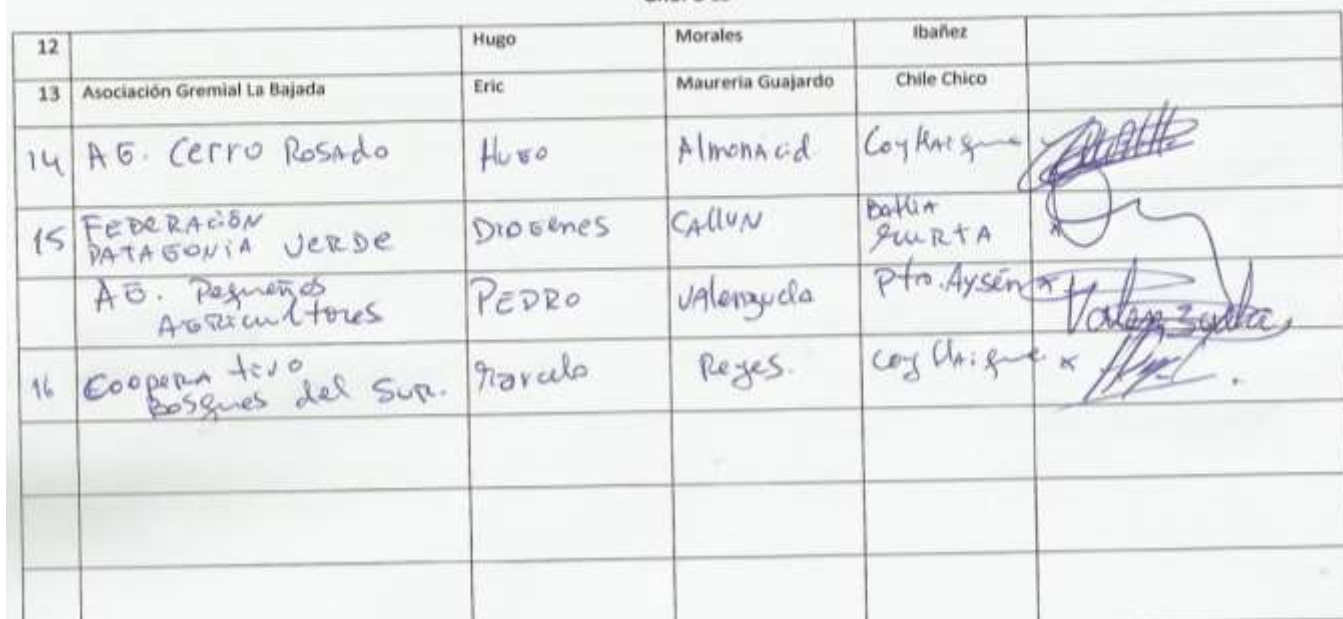 12 Hugo Morales Ibañez
13 Asociación Gremial La Bajada Eric Maureria Guajardo Chile Chico
14 AG. Cerro Rosado Hugo Almonacid Coyhaique
15 FEDERACIÓN PATAGONIA VERDE DIOGENES CALLUN Bahia MURTA x
AG. Pequeños AGRicultores PEDRO Valenzuela Pto. Aysén x Valenzuela
16 Cooperativo Bosques del Sur. Marcelo Reyes. Coyhaique x